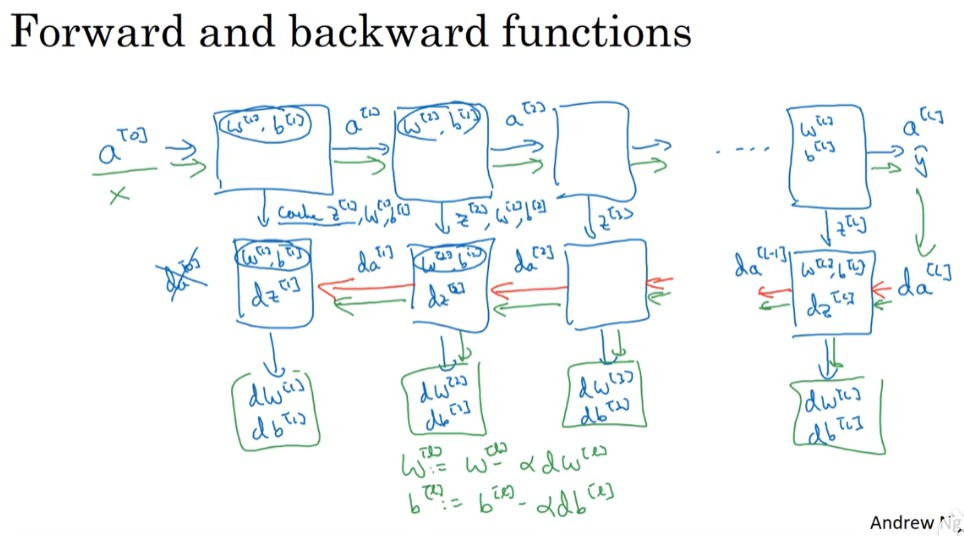 Forward and backward functions
a^[0] w^[1], b^[1] a^[1] w^[2], b^[1] a^[2] ..... w^[L] a^[L]
x b^[L] ŷ
cache z^[1], w^[1], b^[1] z^[2], w^[2], b^[2] z^[3] z^[L]
da^[0] w^[1], b^[1] da^[1] w^[2], b^[2] da^[2] da^[L-1] w^[L], b^[L] da^[L]
dz^[1] dz^[2] dz^[L]
dw^[1] dw^[2] dw^[3] dw^[L]
db^[1] db^[2] db^[3] db^[L]
w^[l] := w^[l] - αdw^[l]
b^[l] := b^[l] - αdb^[l]
Andrew Ng